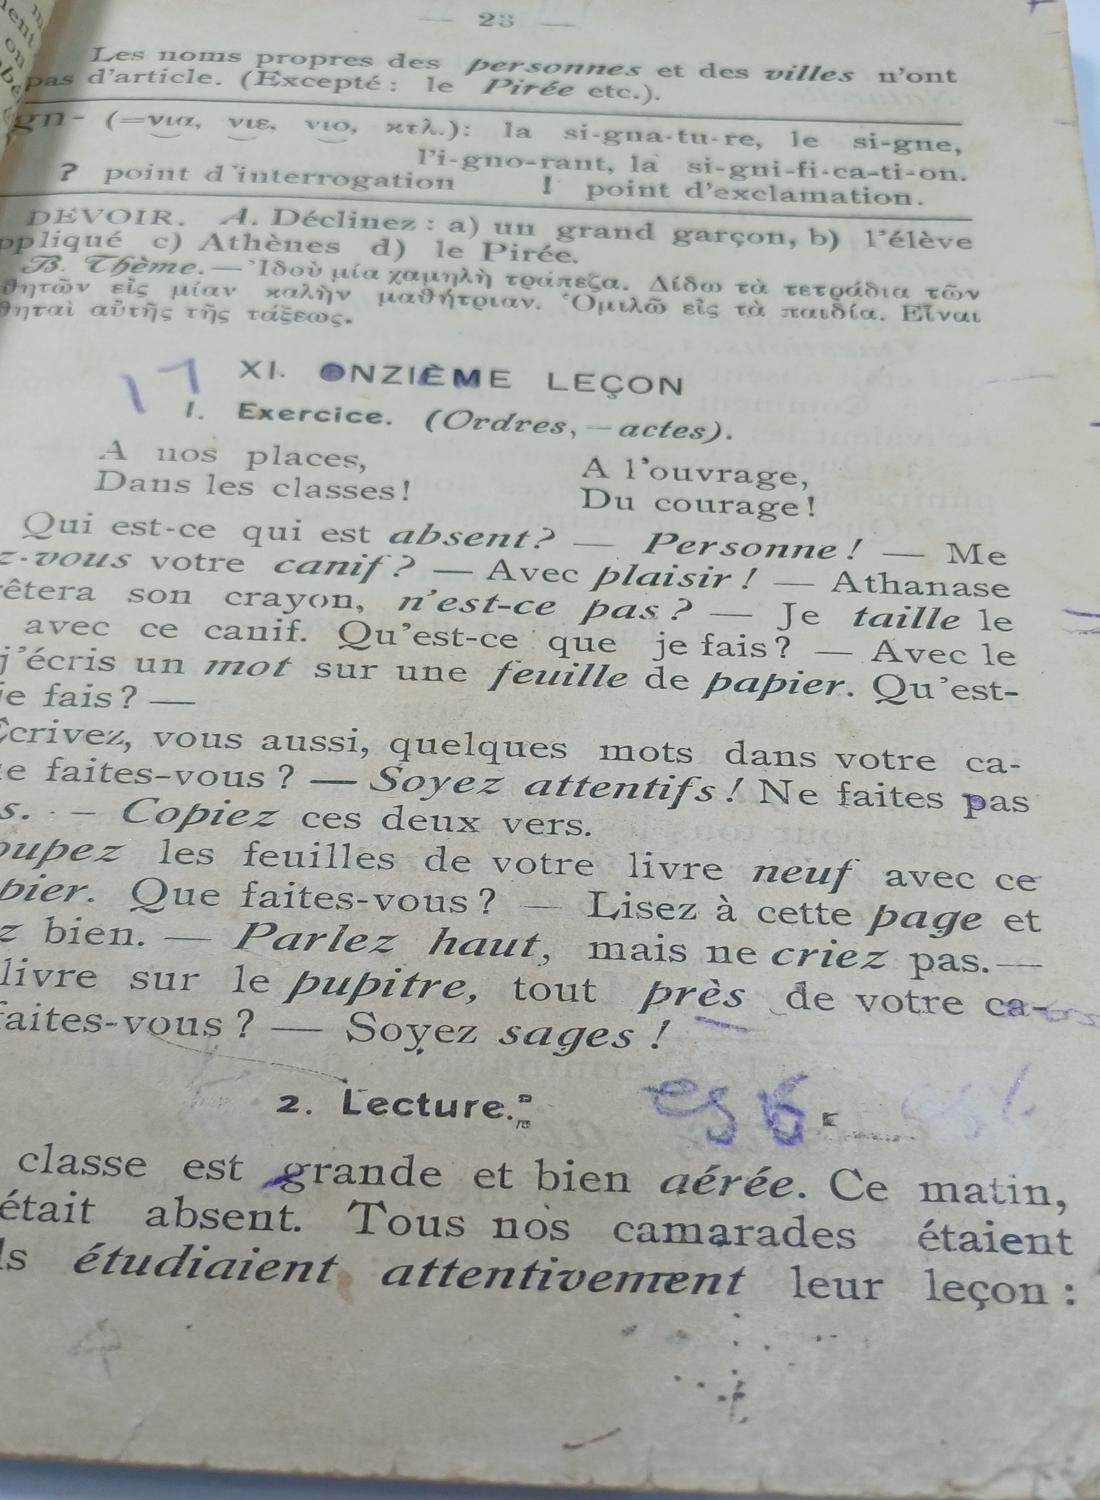 — 23 —
Les noms propres des personnes et des villes n'ont
pas d'article. (Excepté : le Pirée etc.).
gn- (=νια, νιε, νιο, κτλ.): la si-gna-tu-re, le si-gne,
l'i-gno-rant, la si-gni-fi-ca-ti-on.
? point d'interrogation ! point d'exclamation.
DEVOIR. A. Déclinez : a) un grand garçon, b) l'élève
ppliqué c) Athènes d) le Pirée.
B. Thème.—Ἰδοὺ μία χαμηλὴ τράπεζα. Δίδω τὰ τετράδια τῶν
θητῶν εἰς μίαν καλὴν μαθήτριαν. Ὁμιλῶ εἰς τὰ παιδία. Εἶναι
θηταὶ αὐτῆς τῆς τάξεως.
17
XI. ONZIÈME LEÇON
1. Exercice. (Ordres,—actes).
A nos places, A l'ouvrage,
Dans les classes! Du courage!
Qui est-ce qui est absent? — Personne! — Me
z-vous votre canif? — Avec plaisir! — Athanase
rêtera son crayon, n'est-ce pas? — Je taille le
avec ce canif. Qu'est-ce que je fais? — Avec le
j'écris un mot sur une feuille de papier. Qu'est-
je fais? —
Écrivez, vous aussi, quelques mots dans votre ca-
e faites-vous? — Soyez attentifs! Ne faites pas
s. — Copiez ces deux vers.
oupez les feuilles de votre livre neuf avec ce
pier. Que faites-vous? — Lisez à cette page et
z bien. — Parlez haut, mais ne criez pas.—
livre sur le pupitre, tout près de votre ca-
faites-vous? — Soyez sages!
2. Lecture.
classe est grande et bien aérée. Ce matin,
était absent. Tous nos camarades étaient
ls étudiaient attentivement leur leçon :